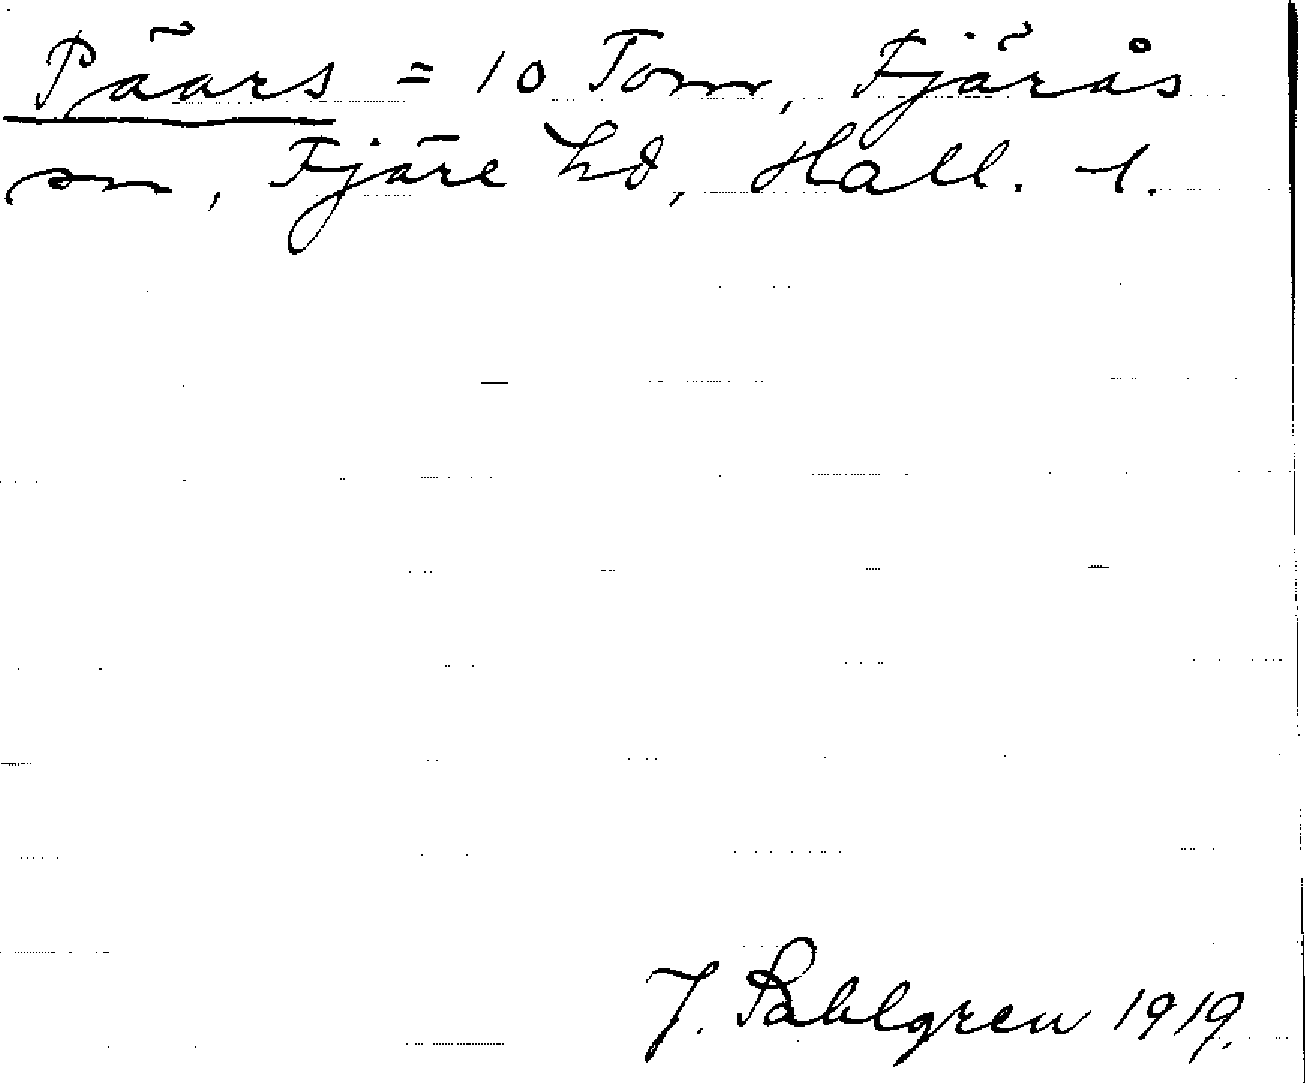 Päars = 10 Torr, Fjärås
sn, Fjäre hd, Hall. l.
J. Sahlgren 1919.